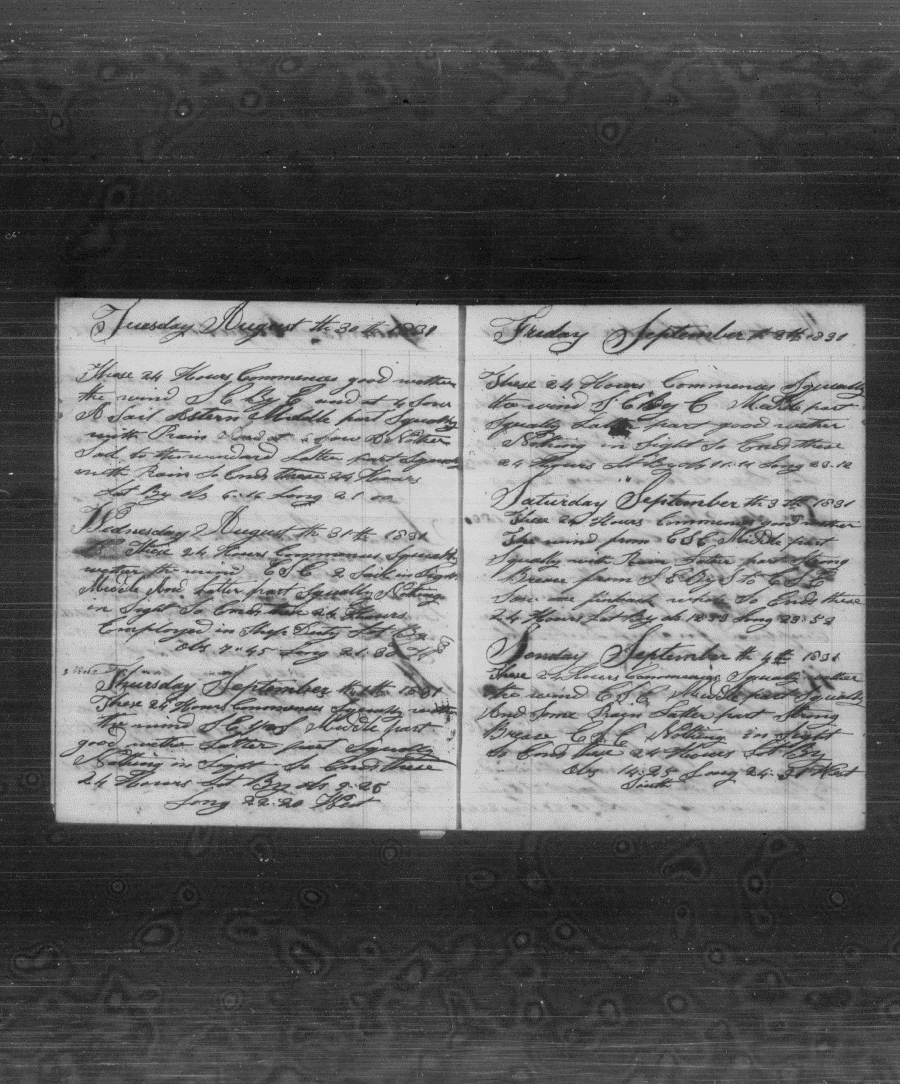 Tuesday August th 30 th 1831
These 24 Hours Commences good wether
the wind S E by E and at 4 saw
A Sail Astern Middle part Squally
with Rain and at saw A Nother
Sail to the windward Latter part Squaly
with Rain So Ends these 24 Hours
Lat By obs 6.14 Long 21.00
Wednesday August th 31 th 1831
These 24 Hours Commences Squally
wether the wind E S E 2 Sail in Sight
Middle And Latter part Squally Nothing
in Sight So Ends these 24 Hours
Employed in Ships Duty Lat By
obs 7.45 Long 21.30 W
Thursday September th 1 th 1831
These 24 Hours Commences Squally wether
the wind Middle part
good wether Latter part Squally
Nothing in Sight So Ends these
24 Hours Lat By obs 9.25
Long 22.20 West
Friday September th 2th 1831
These 24 Hours Commences Squally
the wind S E by E Middle part
Squally Latter part good wether
Nothing in Sight So Ends these
24 Hours Lat By ob 11.14 Long 23.12
Saturday September th 3 th 1831
These 24 Hours Commences good wether
The wind from E S E Middle part
Squally with Rain Latter part Strong
Breese from S E By S to E S E
Saw finback whale So Ends these
24 Hours Lat By ob 12.53 Long 23.52
Sonday September th 4th 1831
These 24 Hours Commences Squally wether
the wind E S E Middle part Squally
And Some Rain Latter part Strong
Breese E S E Nothing in Sight
So Ends these 24 Hours Lat By
Obs 14.25 Long 24. West
South